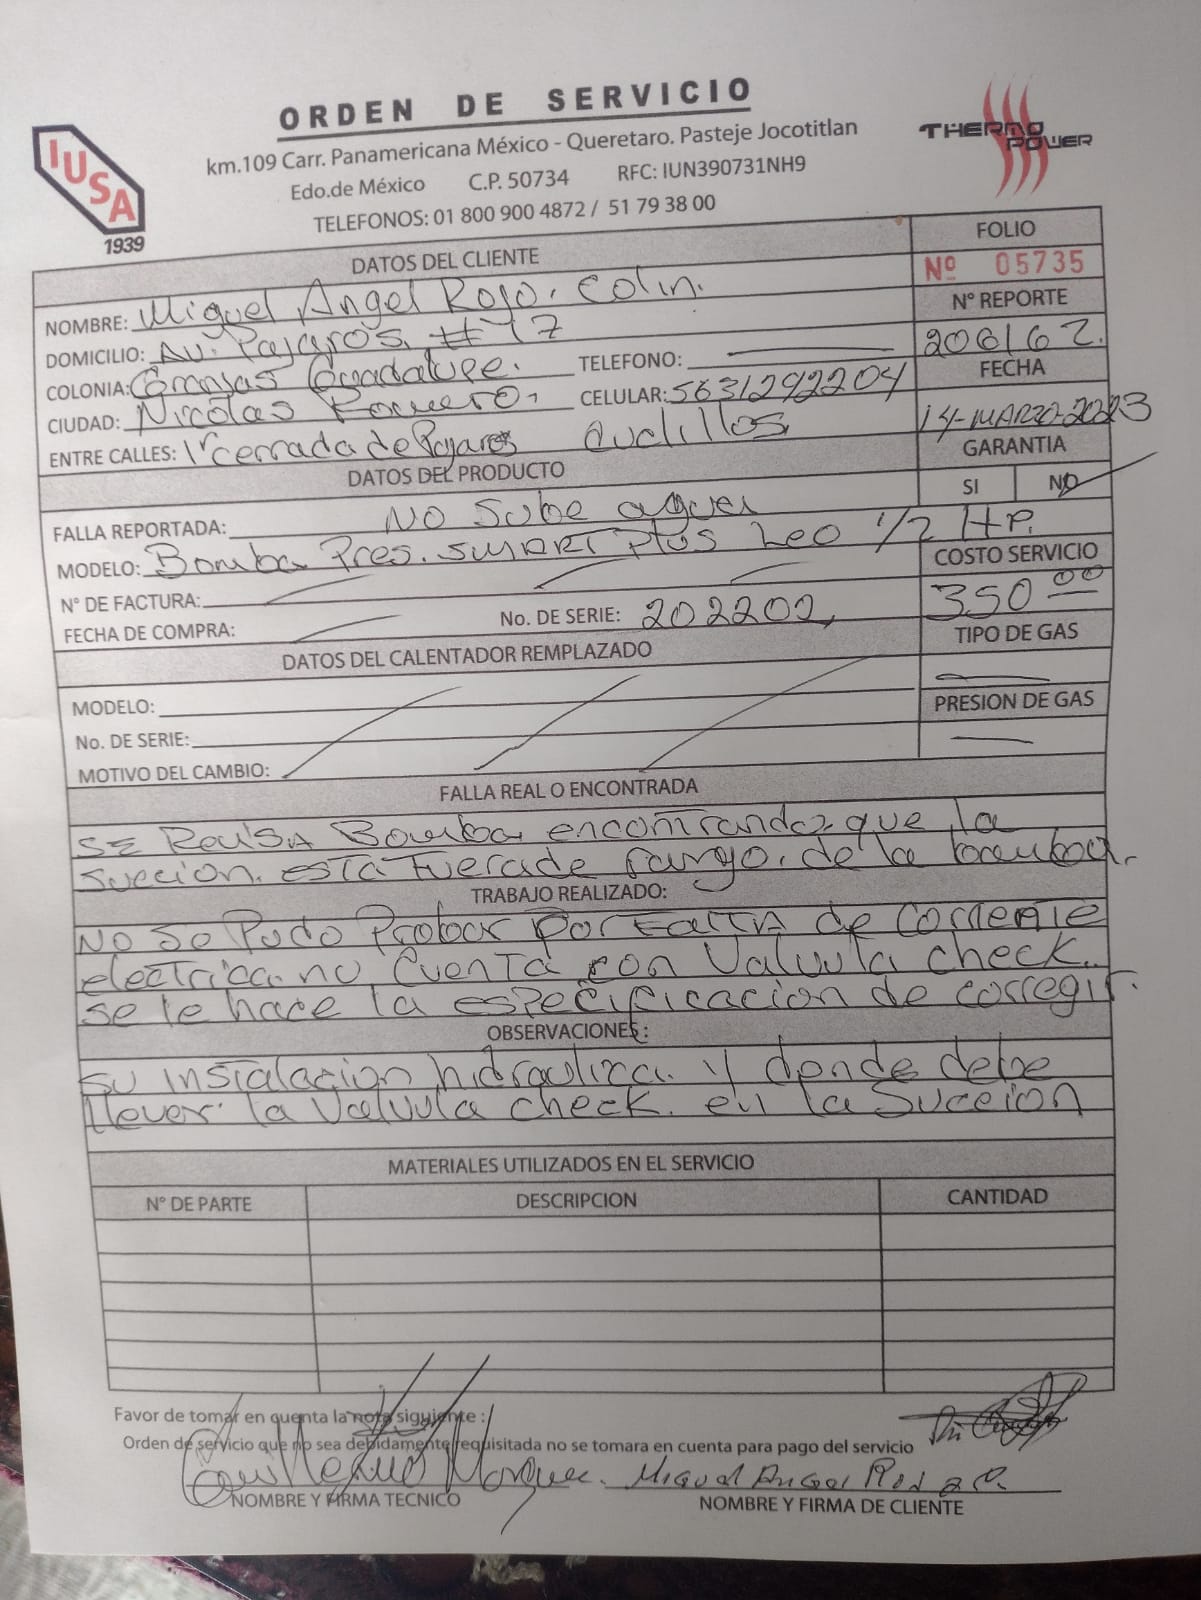 ORDEN DE SERVICIO
km.109 Carr. Panamericana México - Queretaro. Pasteje Jocotitlan
Edo.de México C.P. 50734 RFC: IUN390731NH9
TELEFONOS: 01 800 900 4872 / 51 79 38 00
IUSA
1939
THERMO POWER
DATOS DEL CLIENTE
FOLIO
Nº 05735
NOMBRE: Miguel Angel Rojo. Colin.
Nº REPORTE
206162.
DOMICILIO: AV. Pajaros. #17
COLONIA: Granjas Guadalupe. TELEFONO:
FECHA
14-MARZO-2023
CIUDAD: Nicolas Romero. CELULAR: 5631292204
ENTRE CALLES: 1ª cerrada de Pajaros
GARANTIA
SI NO
DATOS DEL PRODUCTO
FALLA REPORTADA: NO Sube agua
MODELO: Bomba Pres. SMART Plus Leo 1/2 H.P.
COSTO SERVICIO
350.00
N° DE FACTURA:
FECHA DE COMPRA: No. DE SERIE: 202202,
TIPO DE GAS
DATOS DEL CALENTADOR REMPLAZADO
MODELO:
PRESION DE GAS
No. DE SERIE:
MOTIVO DEL CAMBIO:
FALLA REAL O ENCONTRADA
SE Revisa Bomba encontrando que la
Succion. esta Fuera de rango. de la bomba.
TRABAJO REALIZADO:
NO Se Pudo Probar Por Falta de Corriente
electrica. no Cuenta con Valvula check.
se le hace la especificacion de corregir.
OBSERVACIONES:
su instalacion hidraulica. Y donde debe
llevar. la Valvula check. en la Succion
MATERIALES UTILIZADOS EN EL SERVICIO
N° DE PARTE DESCRIPCION CANTIDAD
Favor de tomar en quenta la nota siguiente :
Orden de servicio que no sea debidamente requisitada no se tomara en cuenta para pago del servicio
Guillermo Marquez. Miguel Angel Rojo C.
NOMBRE Y FIRMA TECNICO NOMBRE Y FIRMA DE CLIENTE